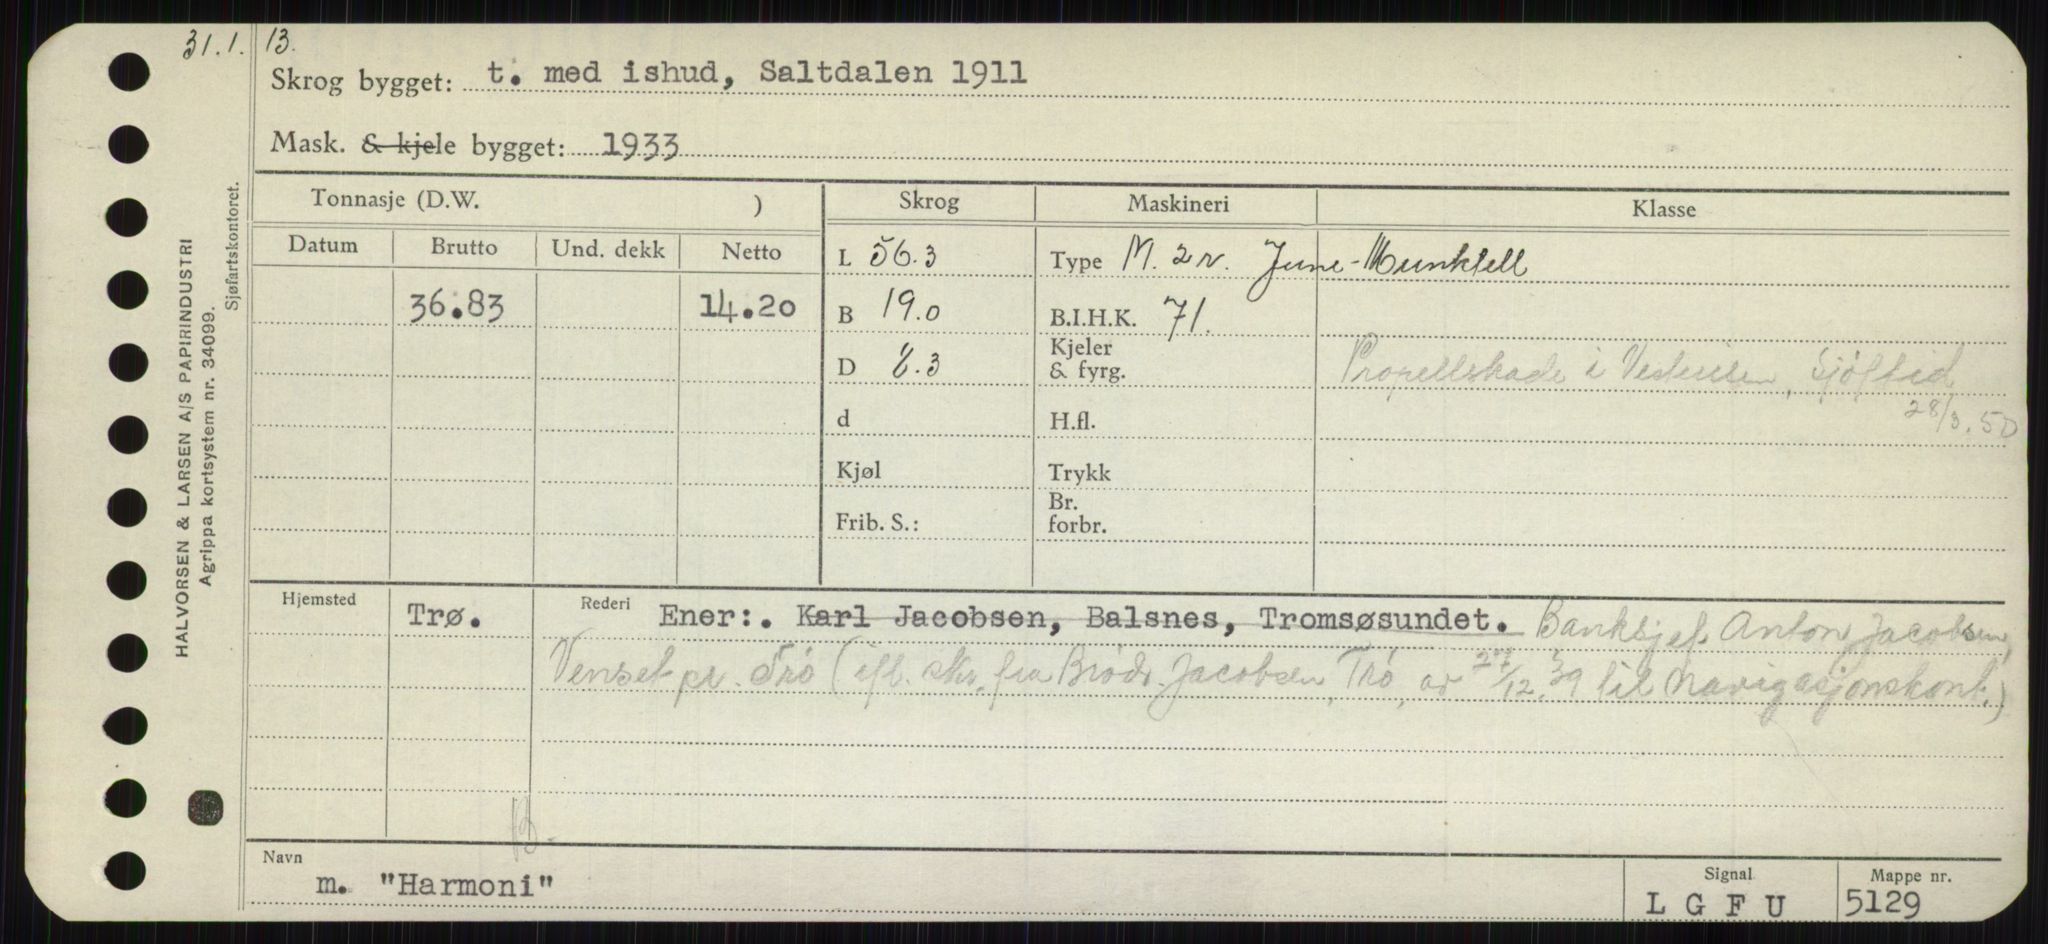 31.1. 13.
Skrog bygget: t. med ishud, Saltdalen 1911
Mask. & kjele bygget: 1933
HALVORSEN & LARSEN A/S PAPIRINDUSTRI
Agrippa kortsystem nr. 34099.
Sjøfartskontoret.
Tonnasje (D.W. ) Skrog Maskineri Klasse
Datum Brutto Und. dekk Netto
L 56.3 Type M. 2 v. June-Munktell
36.83 14.20 B 19.0 B.I.H.K. 71.
D 8.3 Kjeler & fyrg. Propellskade i Vestisen, Sjøftid
28/3.50
d H.fl.
Kjøl Trykk
Frib. S.: Br. forbr.
Hjemsted Trø. Rederi Ener:. Karl Jacobsen, Balsnes, Tromsøsundet. Banksjef Anton Jacobsen,
pr. Trö (ifl. skr. fra Brödr. Jacobsen, Trö, av 27/12.39 til Navigasjonskont.)
B.
Navn m. "Harmoni" Signal L G F U Mappe nr. 5129